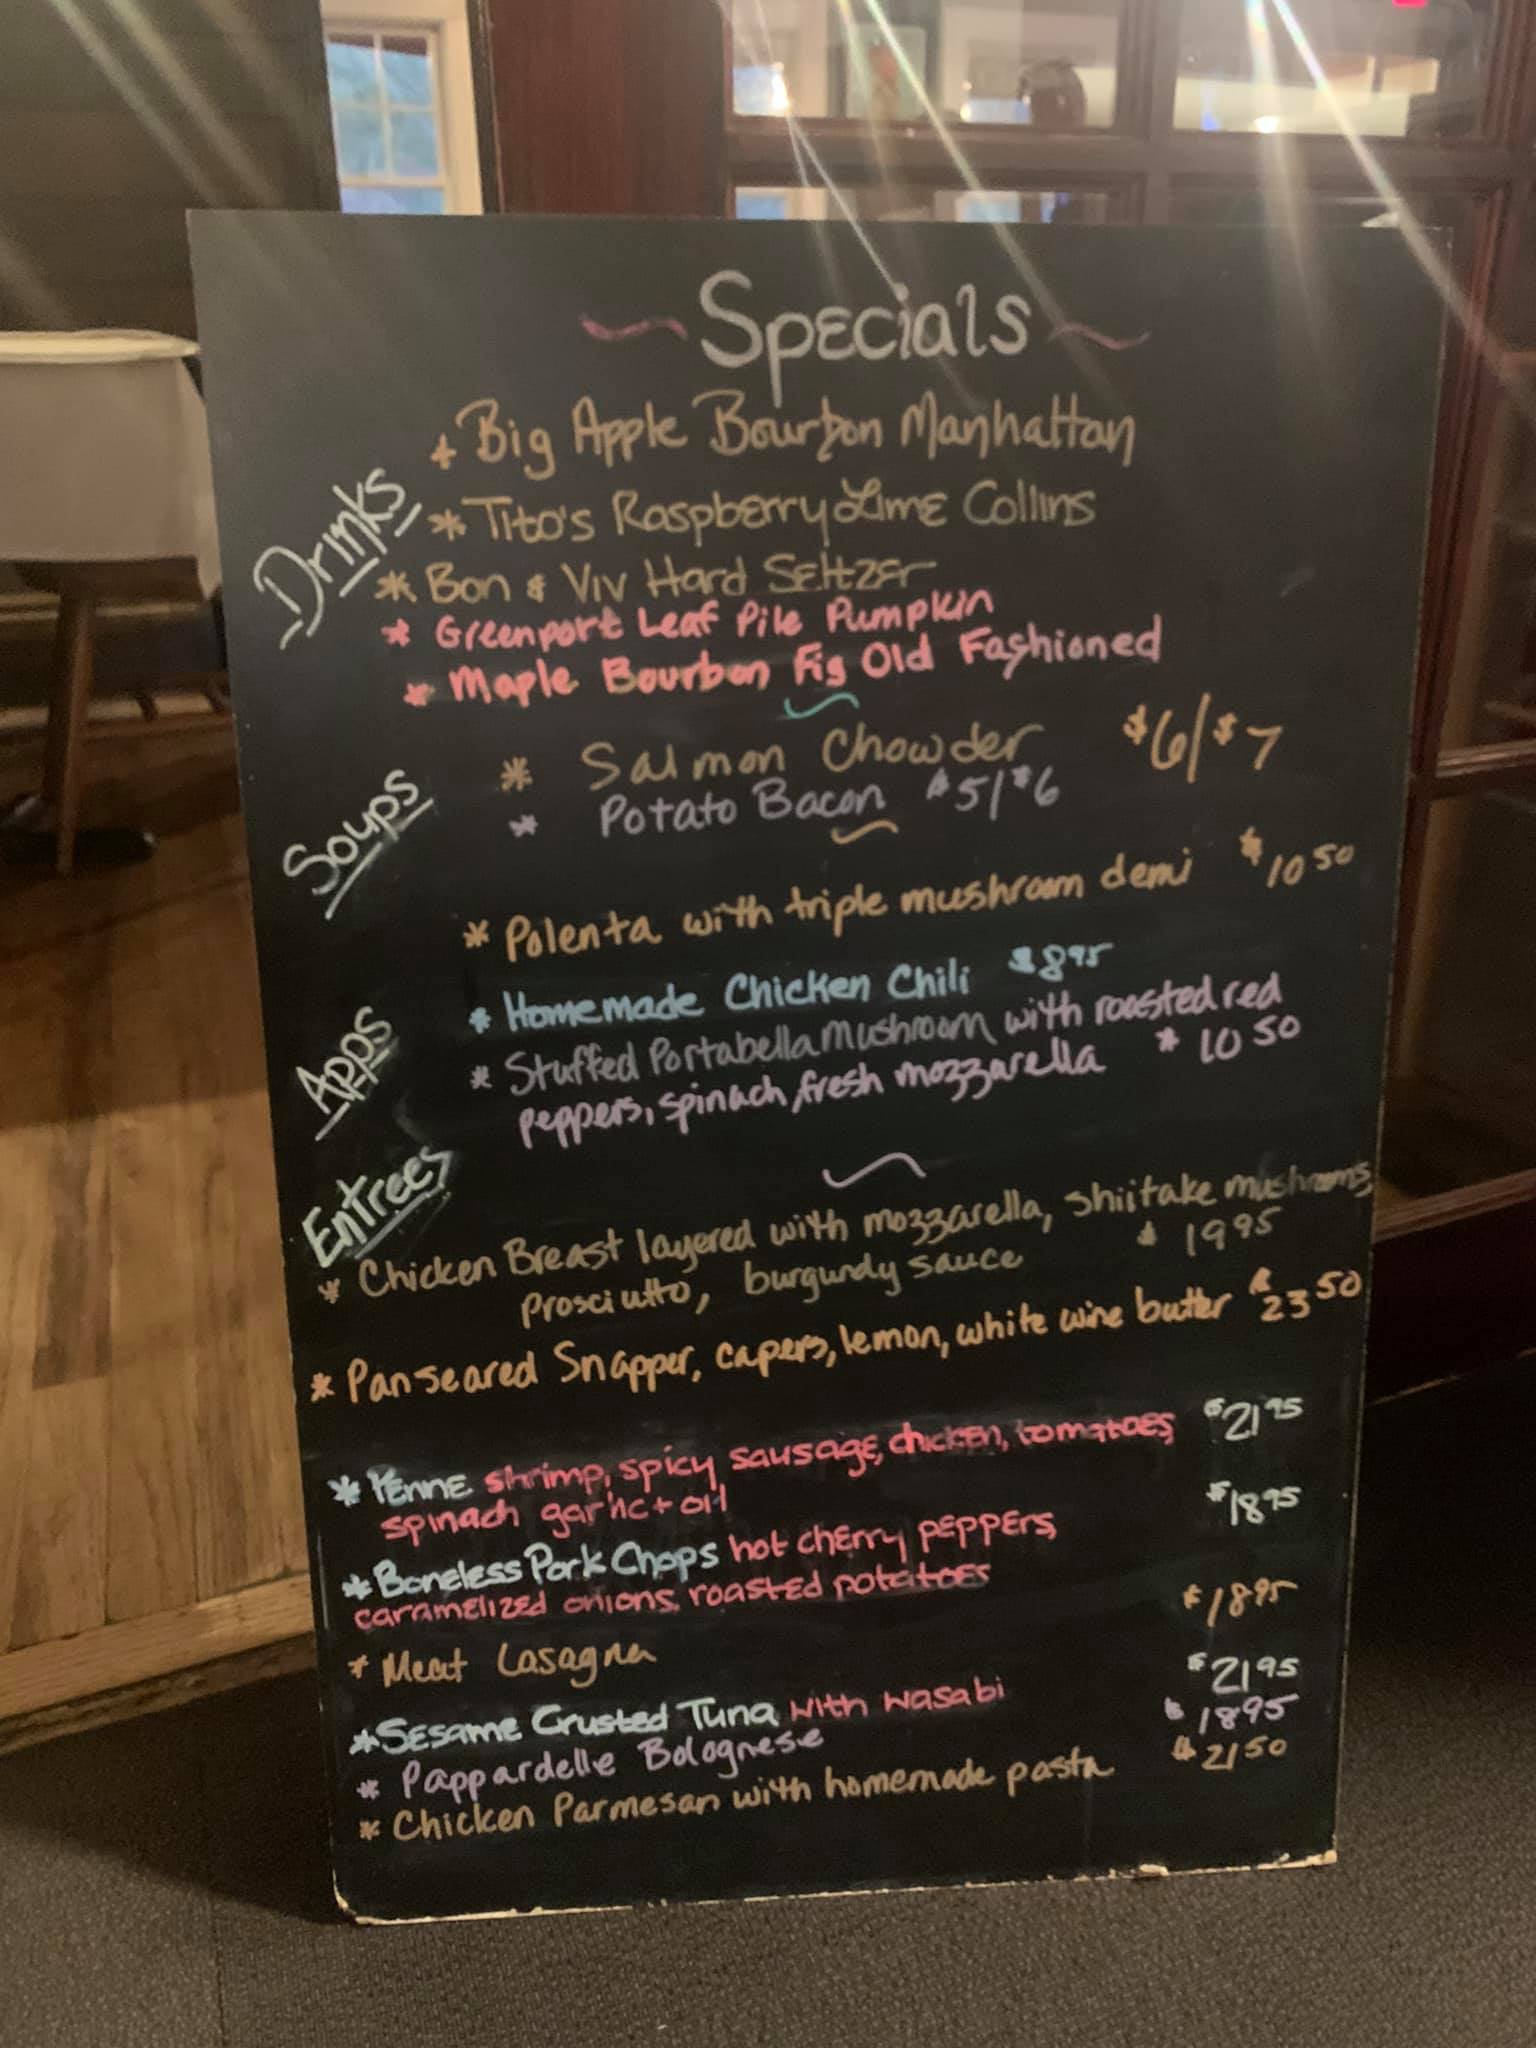 ~ Specials ~
Drinks
* Big Apple Bourbon Manhattan
* Tito's Raspberry Lime Collins
* Bon & Viv Hard Seltzer
* Greenport Leaf Pile Pumpkin
* Maple Bourbon Fig Old Fashioned
Soups
* Salmon Chowder $6/$7
* Potato Bacon $5/$6
Apps
* Polenta with triple mushroom demi $10 50
* Homemade Chicken Chili $8 95
* Stuffed Portabella Mushroom with roasted red
peppers, spinach, fresh mozzarella $10 50
Entrees
* Chicken Breast layered with mozzarella, shiitake mushrooms,
prosciutto, burgundy sauce $19 95
* Pan seared Snapper, capers, lemon, white wine butter $23 50
* Penne shrimp, spicy sausage, chicken, tomatoes, $21 95
spinach garlic + oil
* Boneless Pork Chops hot cherry peppers, $18 95
caramelized onions, roasted potatoes
* Meat Lasagna $18 95
* Sesame Crusted Tuna with wasabi $21 95
* Pappardelle Bolognese $18 95
* Chicken Parmesan with homemade pasta $21 50